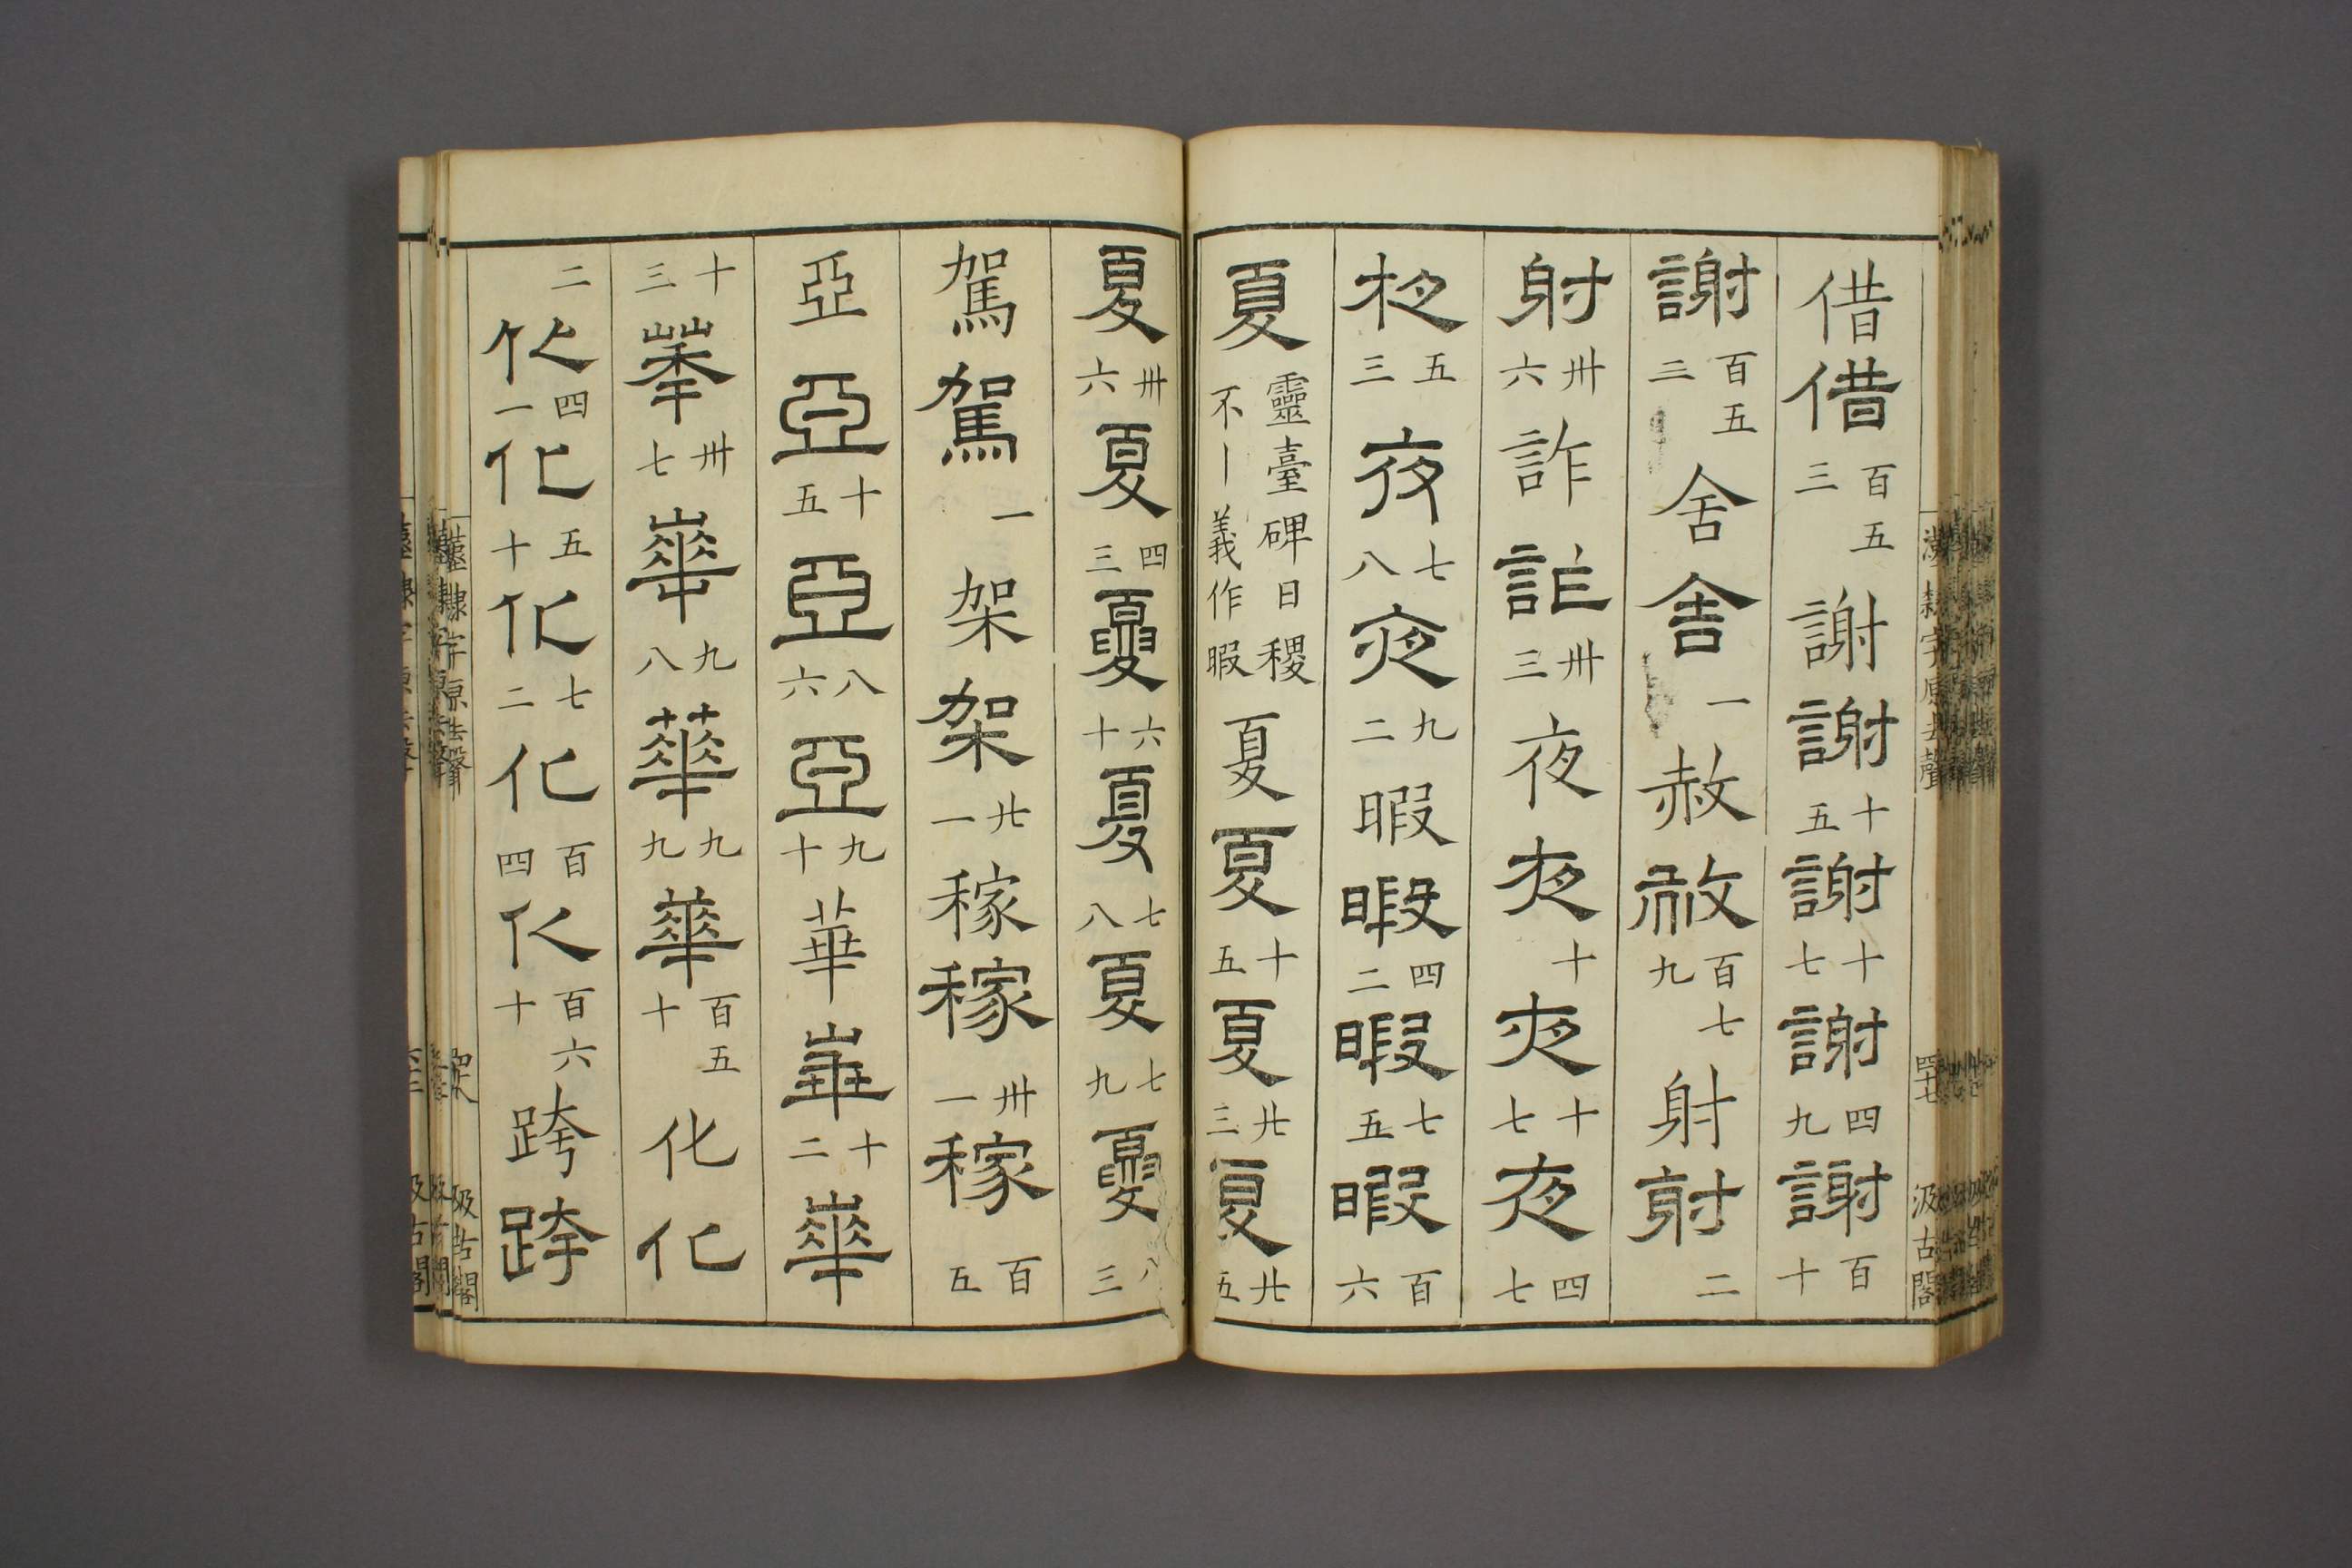 漢隸字原去聲 四十七 汲古閣
借借百五三謝謝十五謝十七謝四九謝百十
謝百五三舍舍一赦赦百七九射射二
射卅六詐詐卅三夜夜十夜十七夜四七
夜五三夜七八夜九二暇暇四二暇七五暇百六
夏靈臺碑日稷不丨義作暇夏夏十五夏廿三夏廿五
夏卅六夏四三夏六十夏七八夏七九夏八三
駕駕一架架廿一稼稼卅一稼百五
亞亞十五亞八六亞九十華華十二華
十三華卅七華九八華九九華百五十化化
二化四一化五十化七二化百四化百六十跨跨
隸字原去聲 汲古閣